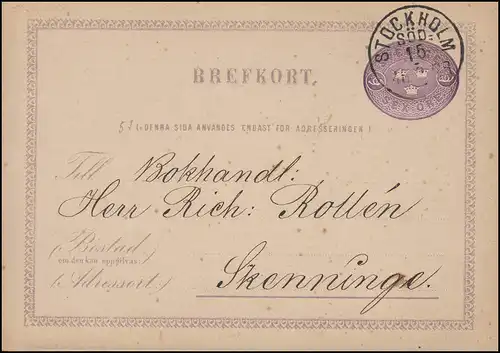 STOCKHOLM
SÖD.
15
BREFKORT.
(DENNA SIDA ANVÄNDES ENDAST FÖR ADRESSERINGEN)
Till Bokhandl:
Herr Rich: Rollén
(Bostad
om den kan uppgifvas)
(Adressort) Skenninge.